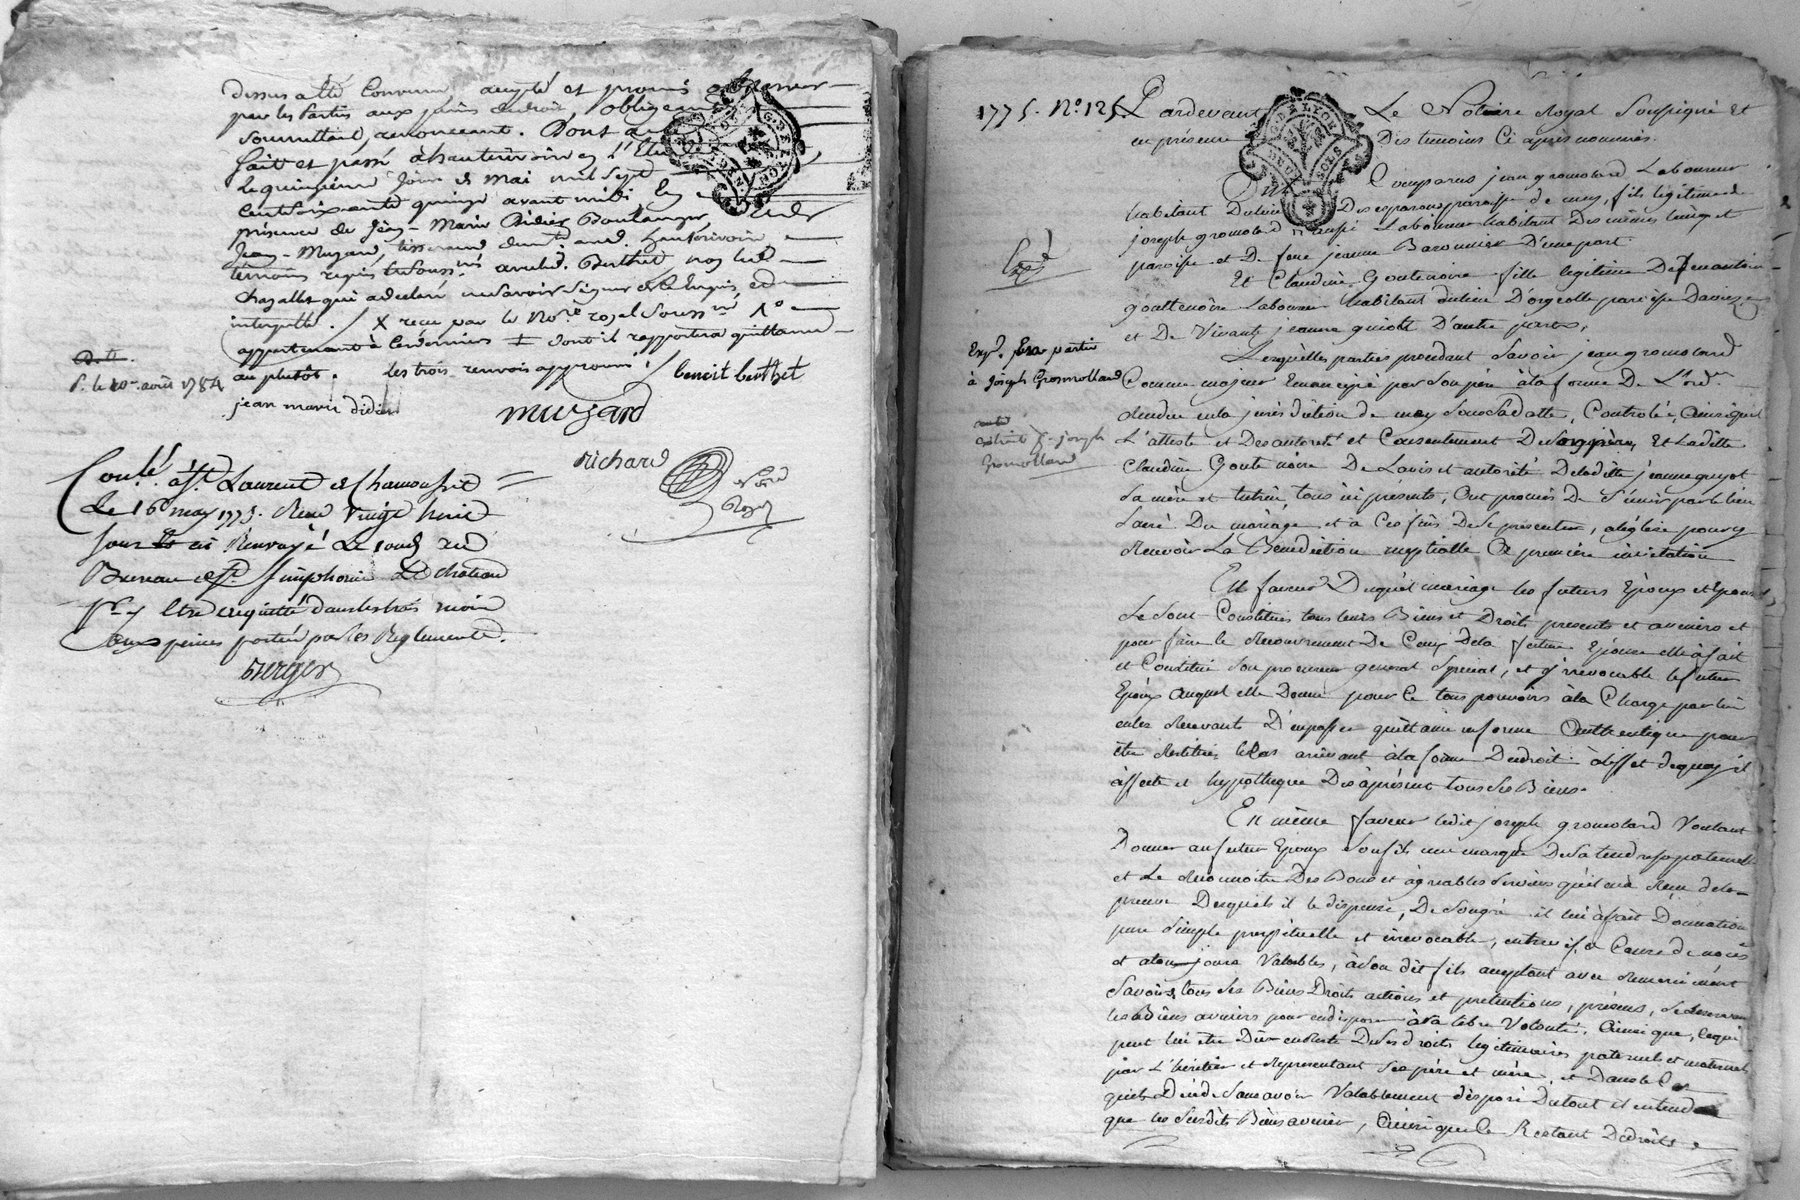 Dessus a été Convenu accepté et promis observer
par les Parties aux peines de droit, obligeant
Soumettant, renonçant. Dont acte
fait et passé à hauterivoire en L'Etude
Le quinzieme Jour de Mai mil Sept
Cent Soixante quinze avant midi, En
présence de Jean-Marie Didier Boulanger
Jean Muzard, tisserand hauterivoire
témoins requis et Souss.nés avec led. Berthet non led.
Chazallet qui a declaré ne Savoir Signer de ce Enquis et
interpellé. / X recu par le No.re royal Souss.né 1°
appartenant à ce dernier ‡ dont il rapportera quittance
au plutôt. les trois renvois approuvés /. benoit berthet
jean marie didier
muzard
P. le 20 août 1784
richard
No.re Royal
Con.lé à S.t Laurent de Chamousset
Le 16 may 1775. Reçu Vingt huit
sous et Renvoyé Le cond. au
Bureau de S.t Simphorien Le chateau
P.r y Etre acquitté dans les trois mois
Sous peines portées par les Reglements.
berger
1775. N.o 125. Pardevant Le Notaire Royal Soussigné Et
en présence Des temoins Ci après nommés.
Comparus jean gromolard Laboureur
habitant Du lieu De paroisse de meys, fils legitime de
joseph gromolard aussi Laboureur habitant Des mêmes lieux et
paroisse et De feue jeanne Baronnier D'une part
Exp.é
Et Claudine Goutenoire fille legitime De f.eu antoine
gouttenoire Laboureur habitant du lieu D'orgeolle paroisse Daveize
et De Vivante jeanne guiott D'autre part.
Exp.é par partie
à Joseph Gromolland
Lesquelles parties procedant Savoir jean gromolard
Comme majeur Emancipé par Son père à la forme De L'ord.ce
Rendue en la jurisdiction de mey Sous Sa datte, Controlée, Ainsi qu'il
L'atteste et De autorité et Consentement De Son père, Et Ladite
joseph
Gromolland
Claudine Goutenoire De Lavis et autorité De ladite jeanne guyot
Sa mère et tutrice, tous ici présents, Ont promis De S'unir par le lien
Sacré Du mariage, et à Ces fins De Se présenter, à léglise pour y
Recevoir La Bénédiction nuptialle à première invitation
En faveur Duquel mariage les futurs Epoux et Epouse
Se Sont Constitués tous leurs Biens et Droits présents et avenirs et
pour faire le Recouvrement De Ceux De la future Epouse elle a fait
et Constitué Son procureur general Special, et irrévocable le futur
Epoux Auquel elle Donne pour Ce tous pouvoirs à la Charge par lui
en les Recevant D'en passer quittance en forme Authentique pour
être Restitués le Cas arrivant à la forme Du droit : à l'effet de quoy il
affecte et hypotheque Dès à présent tous Ses Biens.
En même faveur ledit joseph gromolard Voulant
Donner au futur Epoux Son fils une marque De Sa tendresse paternelle
et Le Reconnoitre Des Bons et agréables Services qu'il en a Reçu de la
preuve Desquels il le dispense, De Son gré il lui a fait Donnation
pure Simple perpétuelle et irrevocable, entre vifs à Cause de noces
et à toujours Valables, à Son dit fils acceptant avec Remerciment
Savoir, tous Ses Biens Droits actions et prétentions, présents, Se Reservant
les Biens avenirs pour en disposer à Sa libre Volonté, Ainsi que, Ce qui
peut lui être Dû en Reste De Ses droits legitimaires paternels et maternels
par L'héritier et Représentant Ses père et mère, et Dans le Cas
qu'il Décède Sans avoir Valablement disposé Du tout il entend
que les Susdits Biens avenirs, Ainsi que le Restant De droits